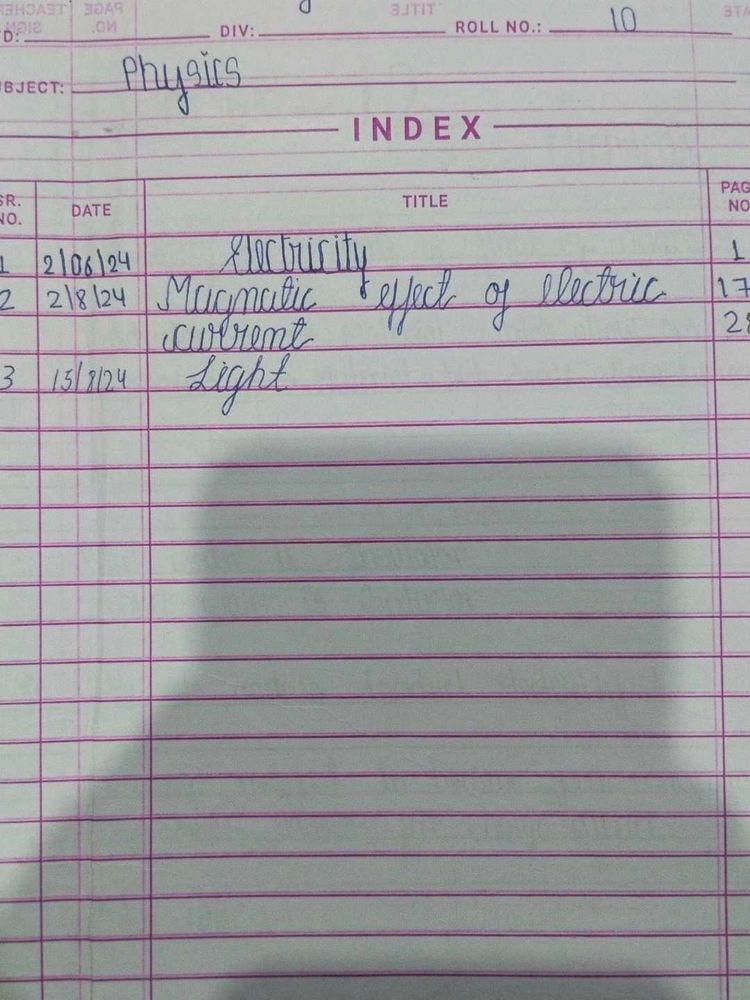 DIV: ROLL NO.: 10
SUBJECT: Physics
INDEX
SR. NO. DATE TITLE PAGE NO.
1 2/06/24 Electricity 1
2 2/8/24 Magnatic effect of electric 17
current 28
3 15/8/24 Light